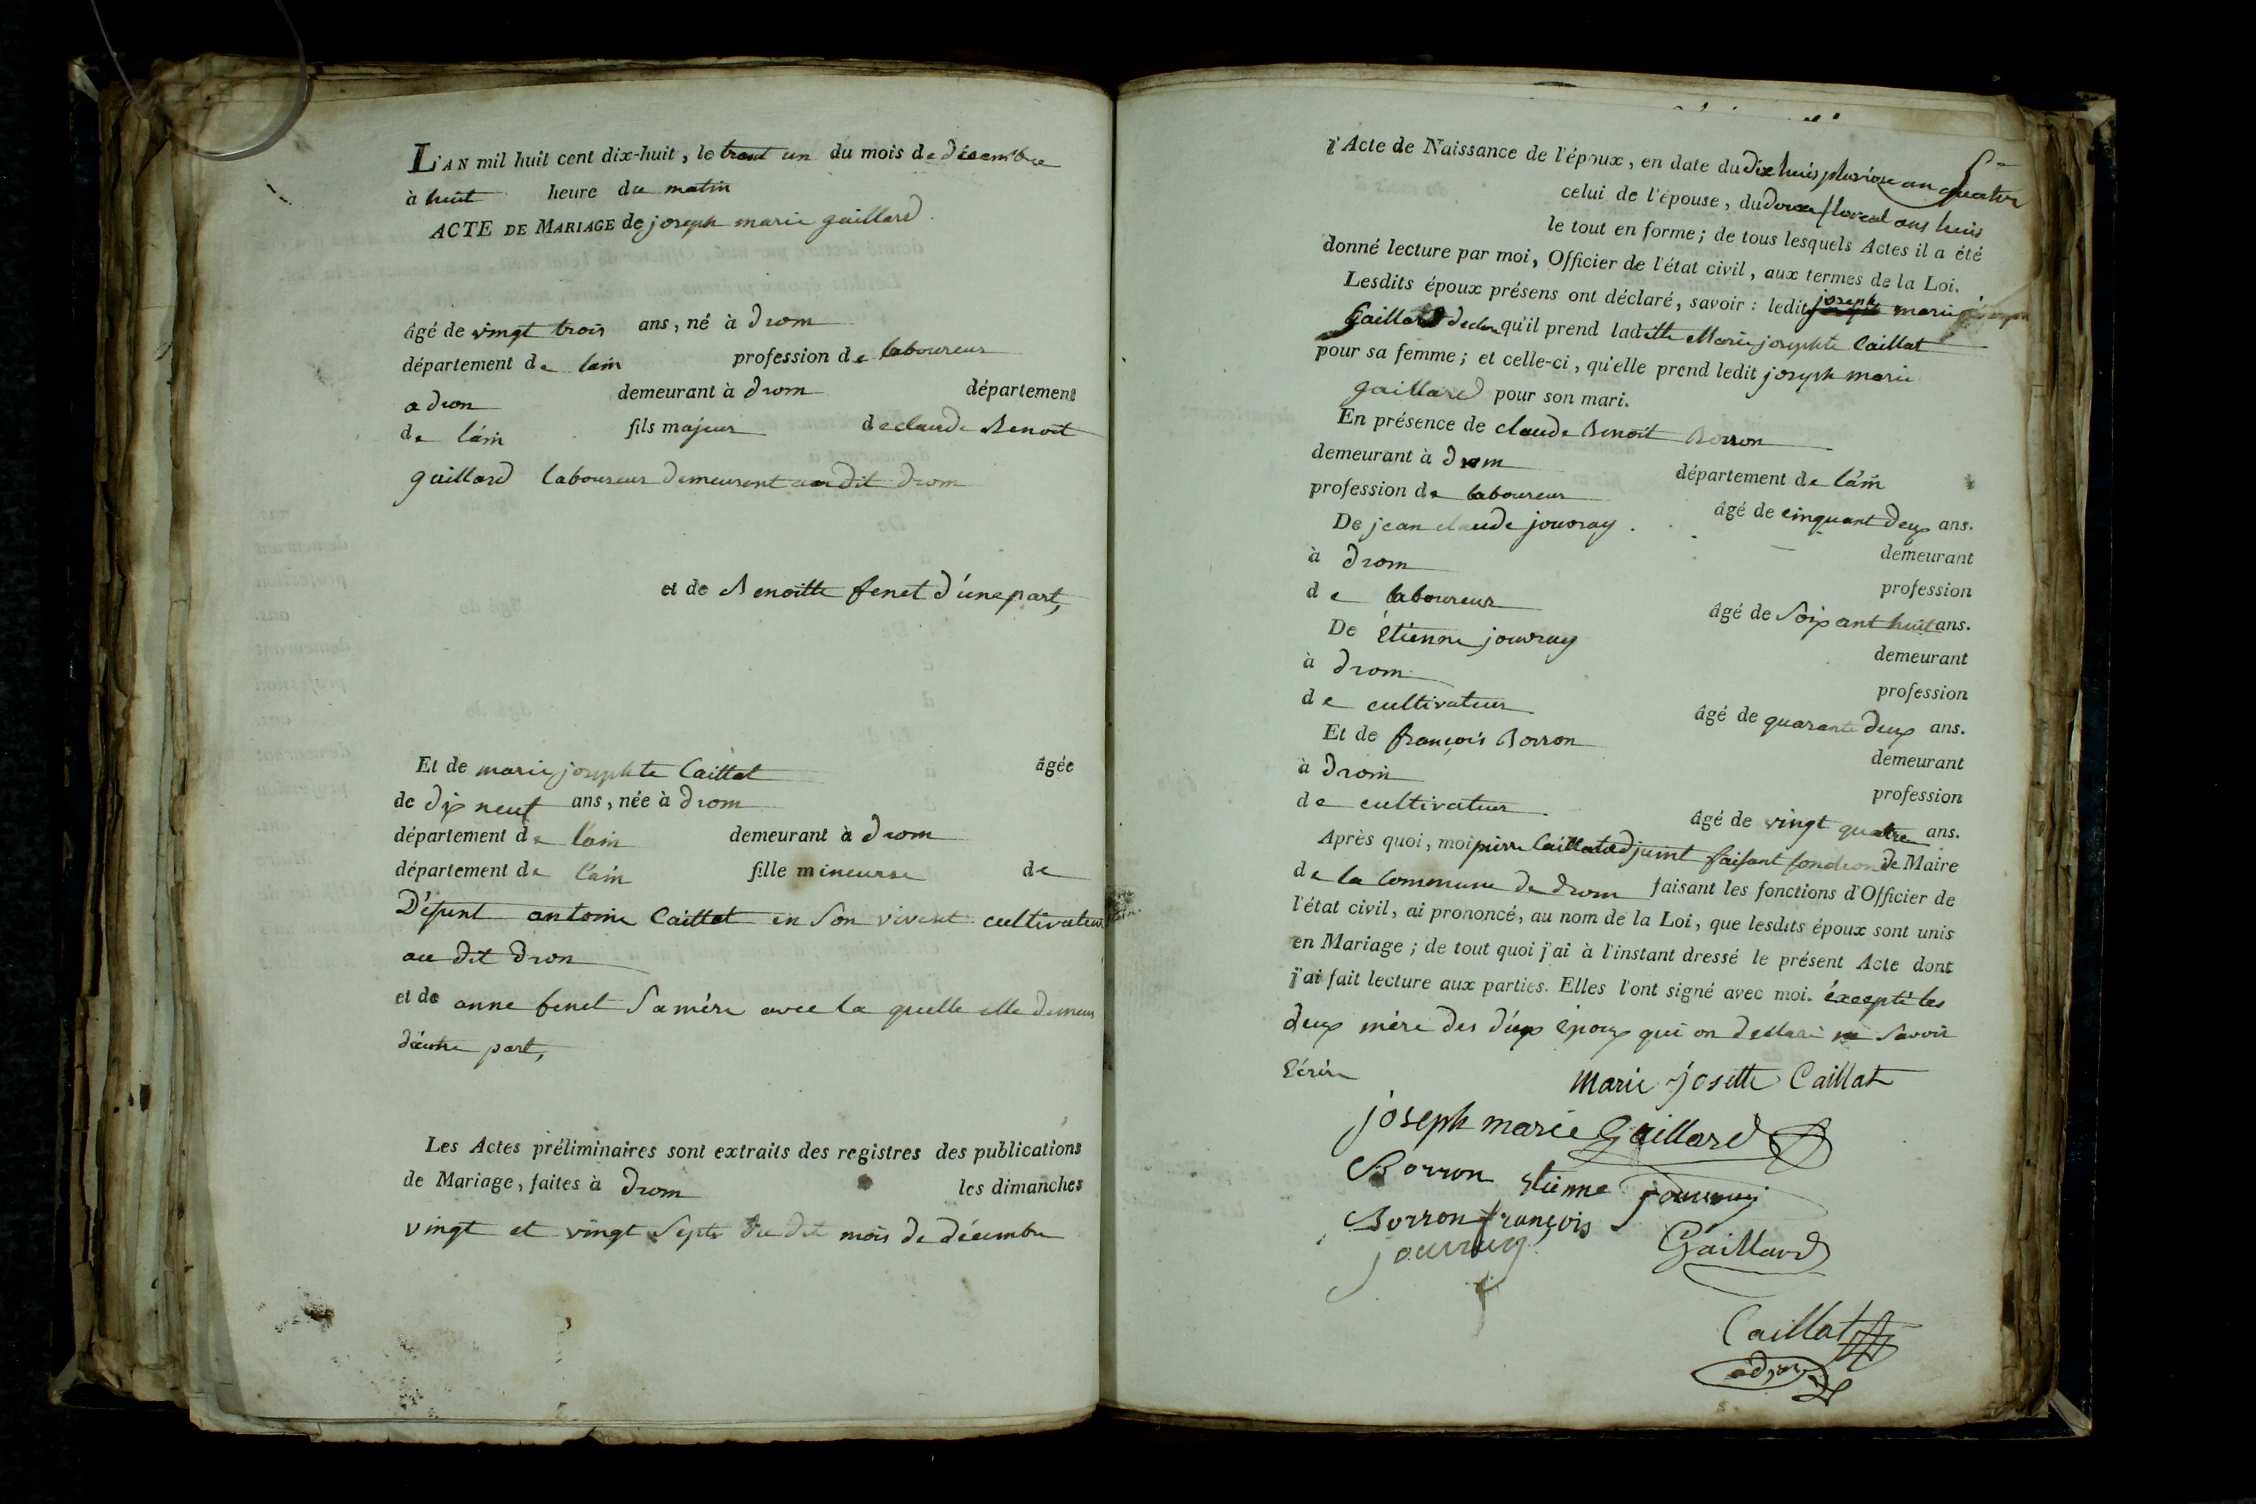 L'AN mil huit cent dix-huit, le trent un du mois de décembre
à huit heure du matin
ACTE DE MARIAGE de joseph marie gaillard
âgé de vingt trois ans, né à drom
département de lain profession de laboureur
a dron demeurant à drom département
de l'ain fils majeur de claude Benoit
gaillard laboureur demeurent au dit drom
et de Benoitte fenet d'une part,
Et de marie josephte Caillat âgée
de dix neuf ans, née à drom
département de l'ain demeurant à drom
département de l'ain fille mineurse de
Défunt antoine Caillat en son vivent cultivateur
au dit dron
et de anne fenet Sa mère avec la quelle elle demeur
d'autre part,
Les Actes préliminaires sont extraits des registres des publications
de Mariage, faites à drom les dimanches
vingt et vingt Sept du dit mois de décembre
l'Acte de Naissance de l'époux, en date du dix huis pluviose an quatre
celui de l'épouse, du douze floreal ans huis
le tout en forme; de tous lesquels Actes il a été
donné lecture par moi, Officier de l'état civil, aux termes de la Loi.
Lesdits époux présens ont déclaré, savoir : ledit joseph marie
Gaillard declare qu'il prend ladette Marie josephte Caillat
pour sa femme; et celle-ci, qu'elle prend ledit joseph marie
gaillard pour son mari.
En présence de claude Benoit Borron
demeurant à drom département de l'ain
profession de laboureur âgé de cinquant deux ans.
De jean claude jouvray demeurant
à drom profession
de laboureur âgé de Soixant huit ans.
De Étienne jouvray demeurant
à drom profession
de cultivateur âgé de quarante deux ans.
Et de françois Borron demeurant
à drom profession
de cultivateur âgé de vingt quatre ans.
Après quoi, moi pierre Caillat adjoint faisant fonction de Maire
de la Commune de drom faisant les fonctions d'Officier de
l'état civil, ai prononcé, au nom de la Loi, que lesdits époux sont unis
en Mariage; de tout quoi j'ai à l'instant dressé le présent Acte dont
j'ai fait lecture aux parties. Elles l'ont signé avec moi. éxcepté les
deux mère des deux époux qui on dellaré ne Savoir
Eérire
Marie josette Caillat
joseph marie Gaillard
Borron etienne jouvray
Borron françois
jouvray Gaillard
Caillat
adj